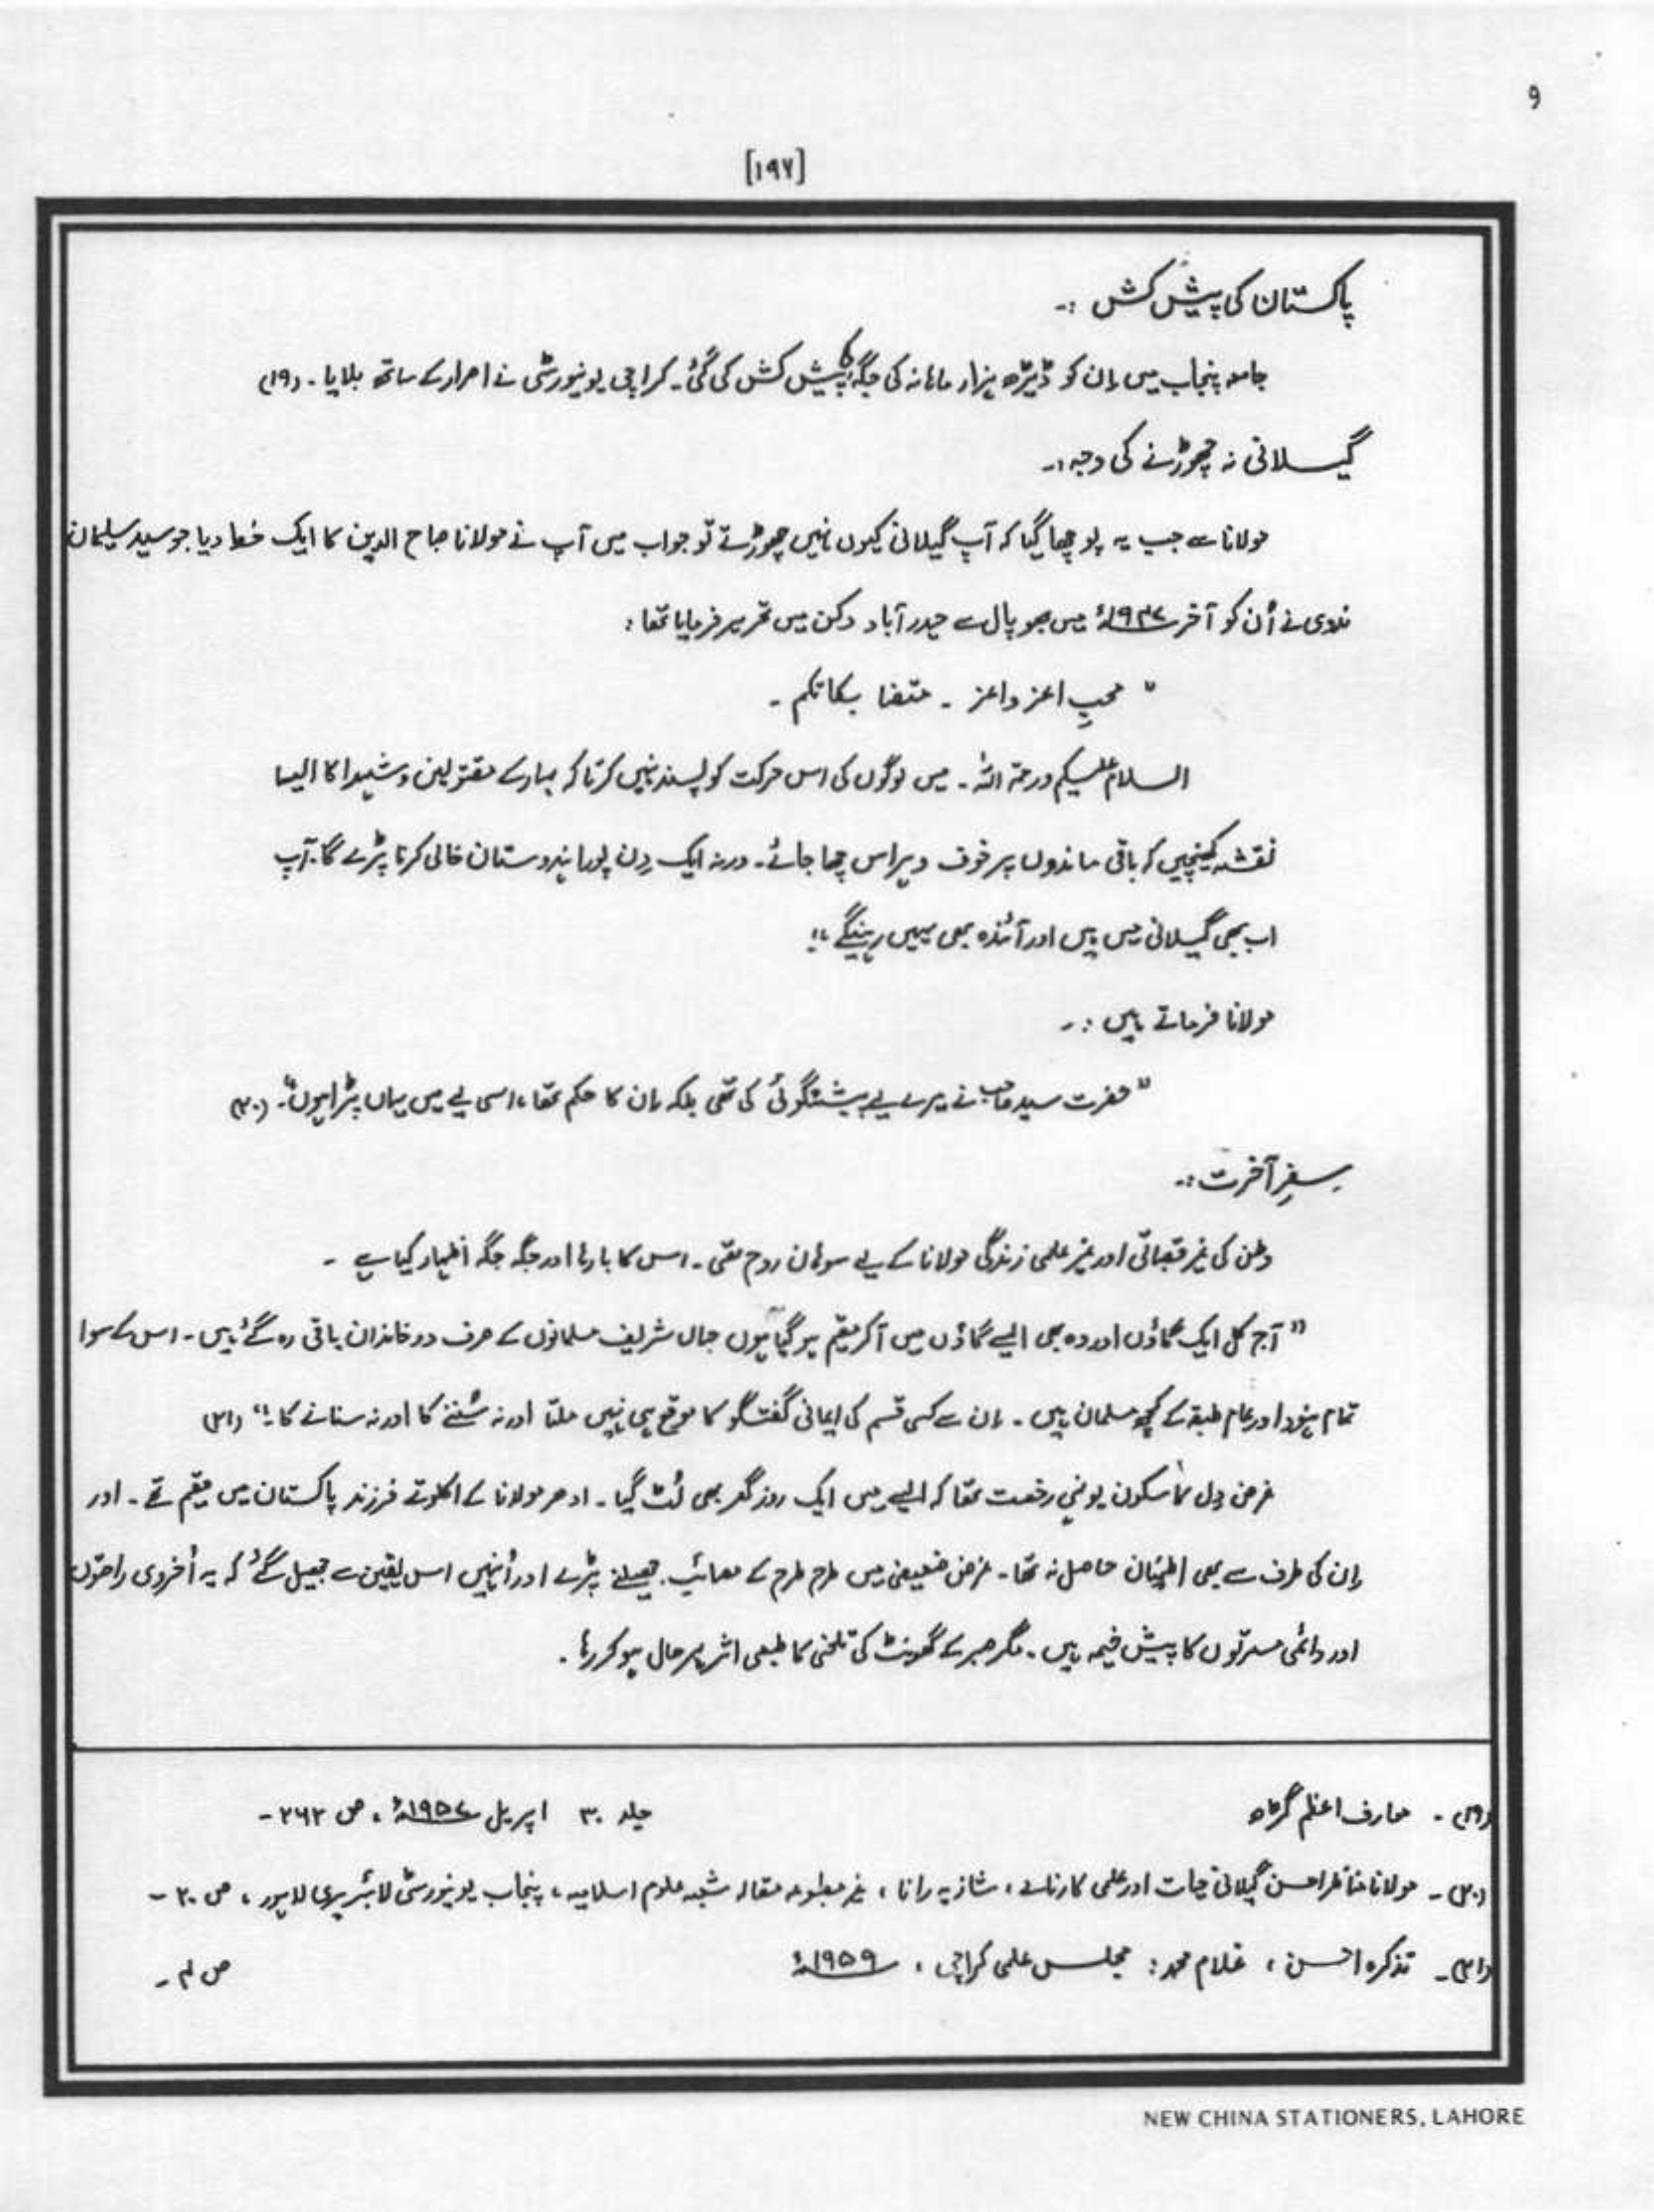 9
[۱۹۷]
پاکستان کی پیش کش :۔
جامعہ پنجاب میں اِن کو ڈیڑھ ہزار ماہانہ کی جگہ کی پیش کش کی گئی۔ کراچی یونیورسٹی نے اصرار کے ساتھ بلایا۔ (۱۹)
گیسلانی نہ چھوڑنے کی وجہ :۔
مولانا سے جب یہ پوچھا گیا کہ آپ گیلانی کیوں نہیں چھوڑتے تو جواب میں آپ نے مولانا صباح الدین کا ایک خط دیا جو سید سلیمان
ندوی نے اُن کو آخر ۱۹۴۷ء میں بھوپال سے حیدر آباد دکن میں تحریر فرمایا تھا :
" محبِ اعز واعز ۔ متعنا بکاتکم ۔
السلام علیکم ورحمۃ اللہ ۔ میں لوگوں کی اس حرکت کو پسند نہیں کرتا کہ ہمارے مقتولین و شہدا کا ایسا
نقشہ کھینچیں کہ باقی ماندوں پر خوف و ہراس چھا جائے۔ ورنہ ایک دِن پورا ہندوستان خالی کرنا پڑے گا۔ آپ
اب بھی گیسلانی میں ہیں اور آئندہ بھی یہیں رہینگے ۔"
مولانا فرماتے ہیں : ۔
" حضرت سید صاحب نے میرے لیے پیشنگوئی کی تھی بلکہ اِن کا حکم تھا ، اسی لیے میں یہاں پڑا ہوں"۔ (۲۰)
سفرِ آخرت :۔
وطن کی غیر قصباتی اور غیر علمی زندگی مولانا کے لیے سوہان روح تھی ۔ اس کا بارہا اور جگہ جگہ اظہار کیا ہے ۔
" آج کل ایک گاؤں اور وہ بھی ایسے گاؤں میں آکر مقیم ہو گیا ہوں جہاں شریف مسلمانوں کے صرف دو خاندان باقی رہ گئے ہیں۔ اس کے سوا
تمام ہنود اور عام طبقہ کے کچھ مسلمان ہیں ۔ اِن سے کسی قسم کی ایمانی گفتگو کا موقع ہی نہیں ملتا اور نہ سُننے کا اور نہ سنانے کا ۔" (۲۱)
غرض دِل کا سکون یونہی رخصت تھا کہ ایسے میں ایک روز گھر بھی لُٹ گیا ۔ ادھر مولانا کے اکلوتے فرزند پاکستان میں مقیم تھے ۔ اور
اِن کی طرف سے بھی اطمینان حاصل نہ تھا ۔ غرض ضعیفی میں طرح طرح کے مصائب جھیلنے پڑے اور اُنہیں اس یقین سے جھیل گئے کہ یہ اُخروی راحتوں
اور دائمی مسرتوں کا پیش خیمہ ہیں ۔ مگر صبر کے گھونٹ کی تلخی کا طبعی اثر بہر حال ہو کر رہا ۔
(۱۹) ۔ معارف اعظم گڑھ جلد ۳۰ اپریل ۱۹۵۷ء ، ص ۲۶۲ ۔
(۲۰) ۔ مولانا مناظر احسن گیلانی حیات اور علمی کارنامے ، شازیہ رانا ، غیر مطبوعہ مقالہ شعبہ علوم اسلامیہ ، پنجاب یونیورسٹی لائبریری لاہور ، ص ۳۰ ۔
(۲۱) ۔ تذکرہ احسن ، غلام محمد : مجلس علمی کراچی ، ۱۹۵۹ء ص ۴ ۔
NEW CHINA STATIONERS, LAHORE